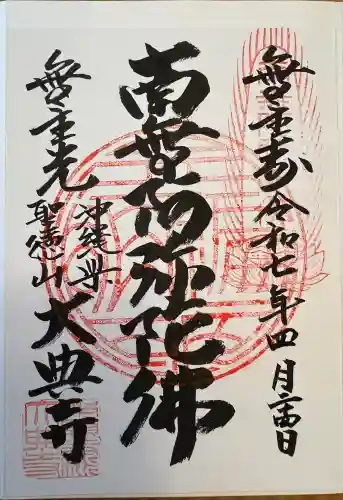 無量寿
令和七年四月二十四日
南無阿弥陀佛
無量光
沖縄県
聖徳山
大典寺